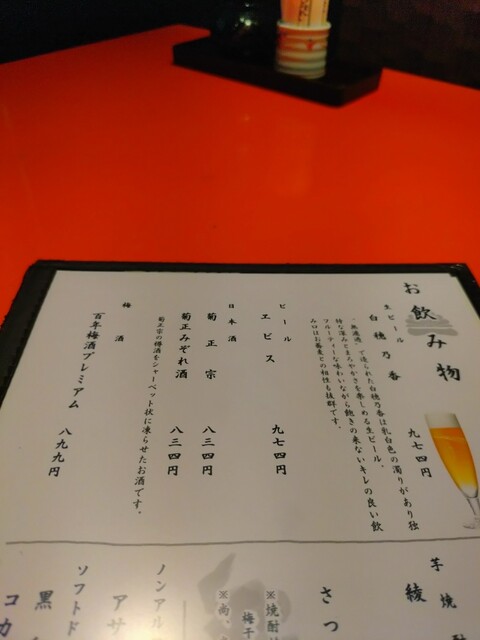 お飲み物
生ビール
白穂乃香 九七四円
・無濾過・で造られた白穂乃香は乳白色の濁りがあり独
特な深みとまろやかさを楽しめる生ビール。
フルーティーな味わいながら飽きの来ないキレの良い飲
み口はお蕎麦との相性も抜群です。
ビール
ヱビス 九七四円
日本酒
菊正宗 八三四円
菊正みぞれ酒 八三四円
菊正宗の樽酒をシャーベット状に凍らせたお酒です。
梅酒
百年梅酒プレミアム 八九九円
芋焼酎
綾
さつ
※焼酎
梅干
※尚、
ノンアル
アサ
ソフトド
黒
コカ